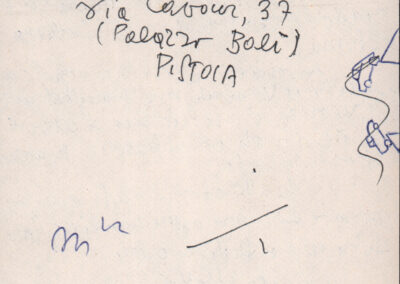 Via Cavour, 37
(Palazzo Balì)
PISTOIA